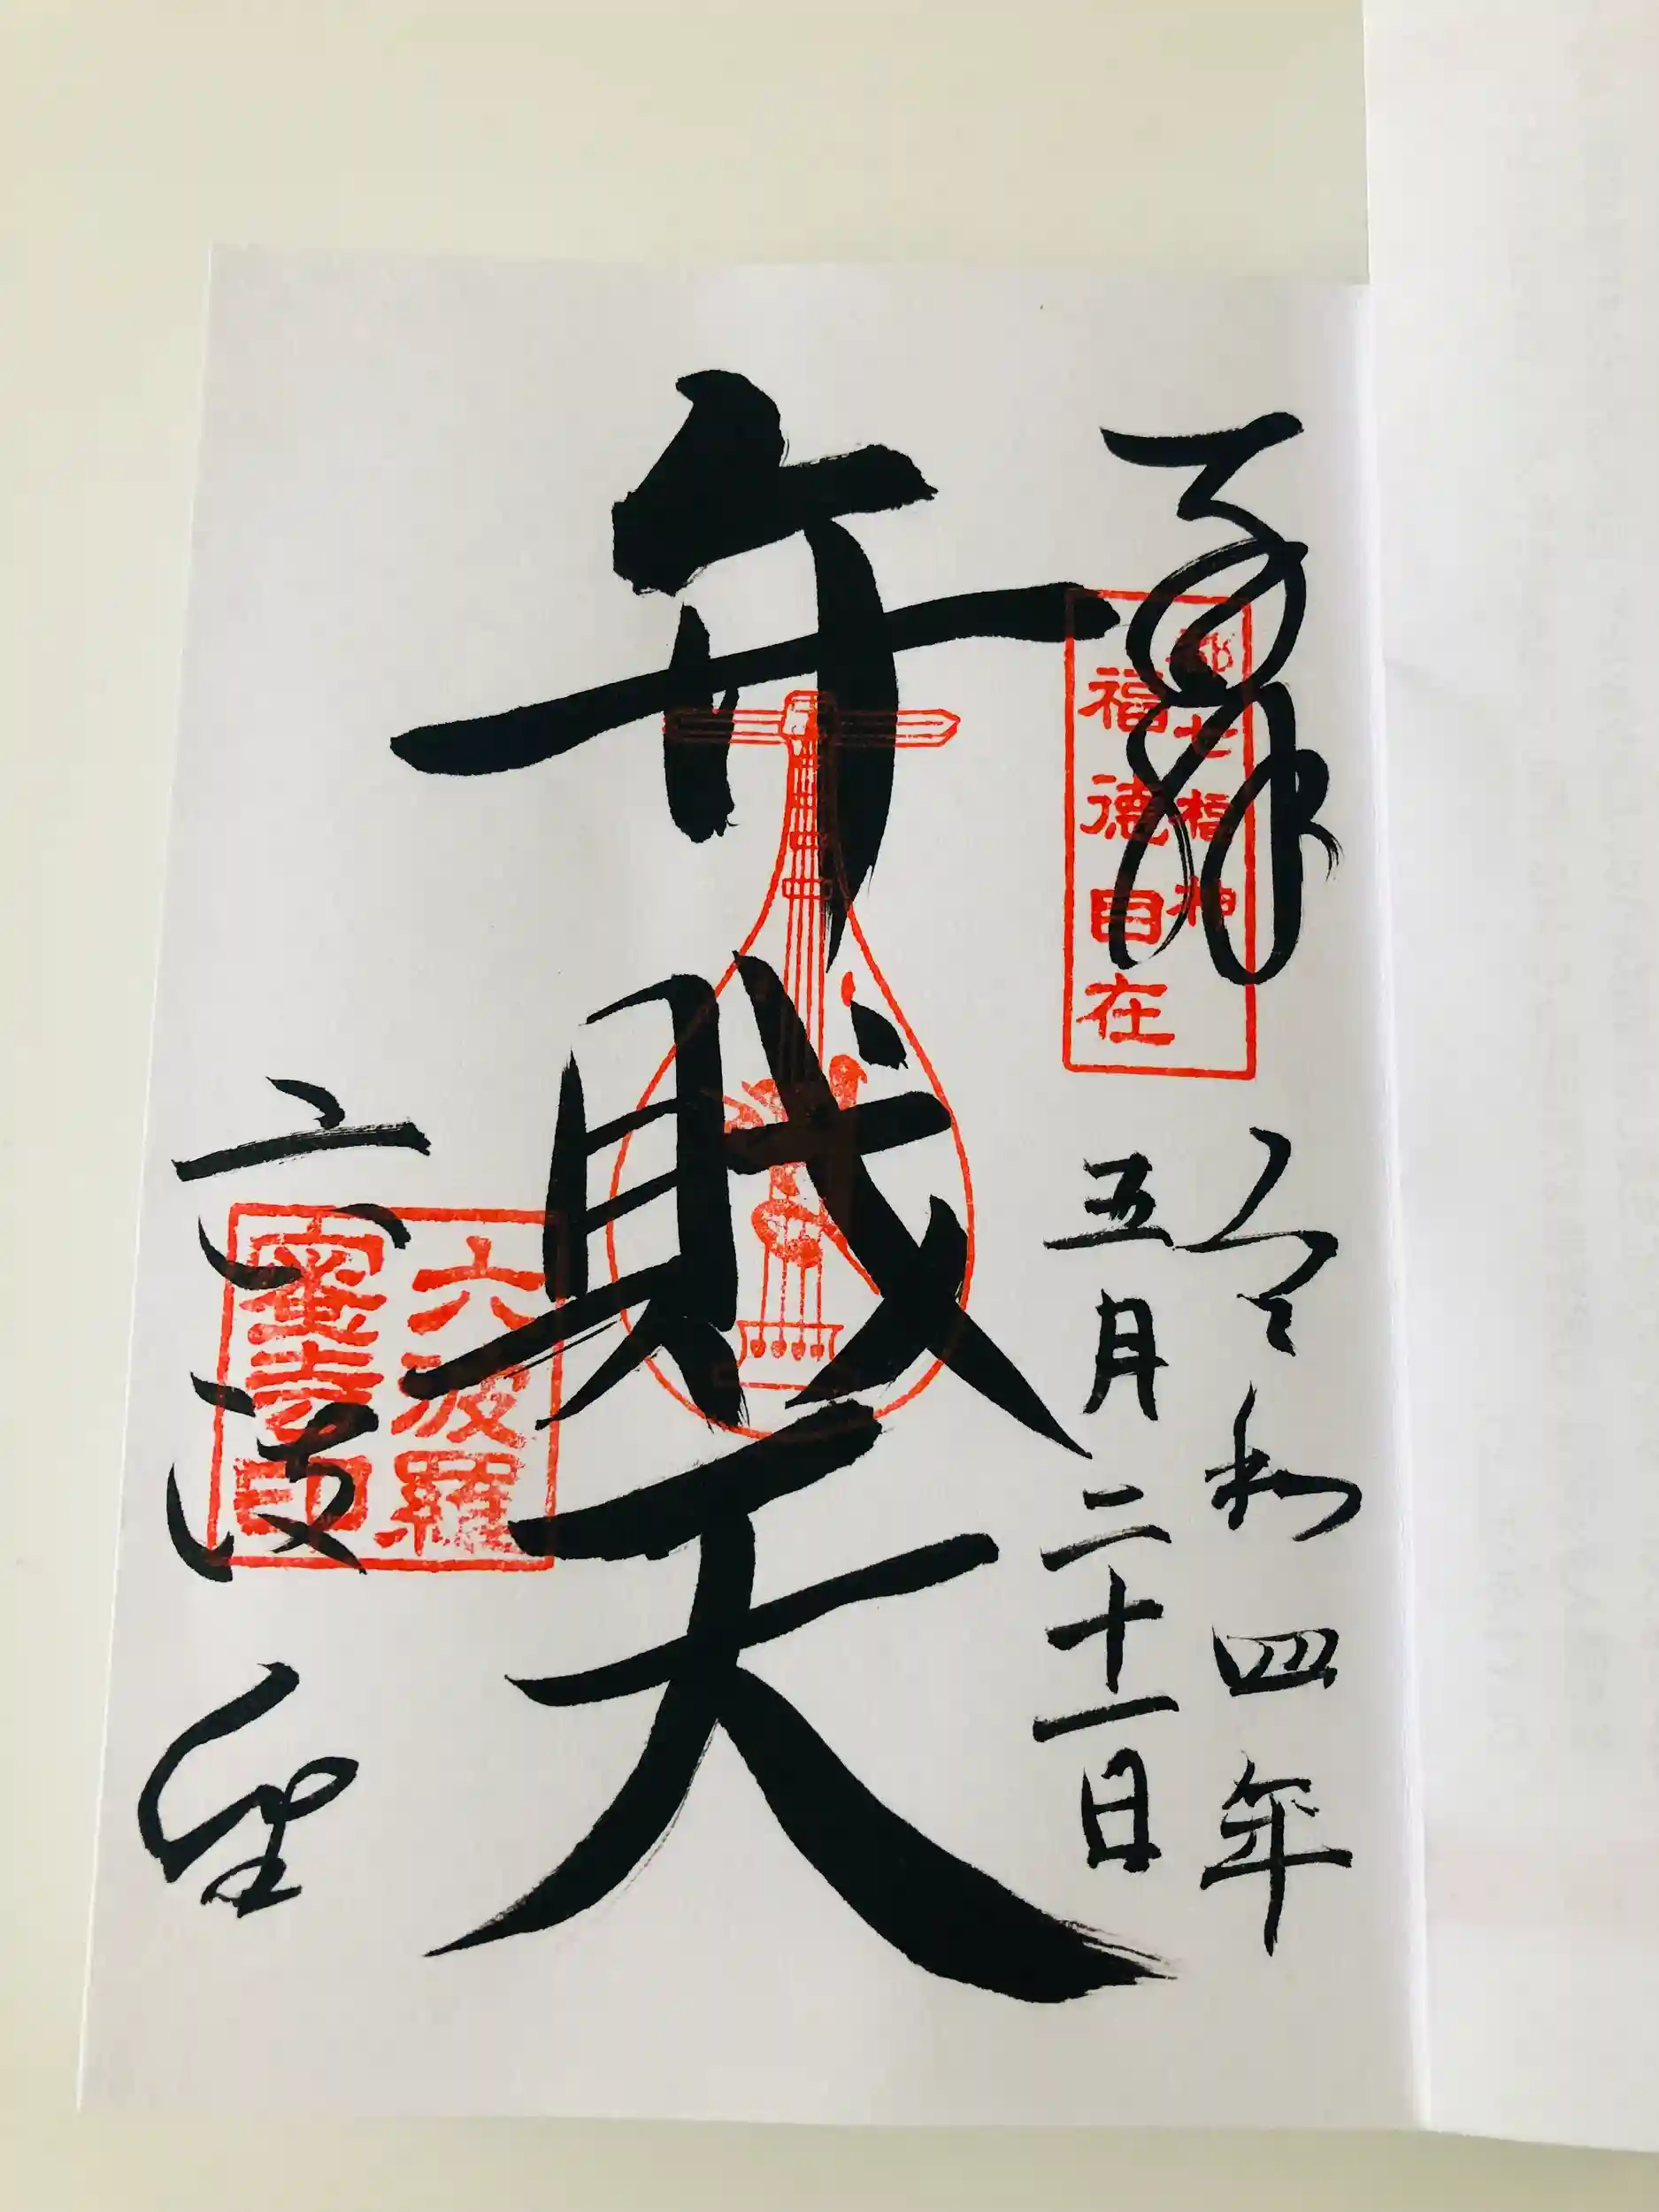 奉拝
都七福神
福德自在
令和四年
五月二十一日
弁財天
六波羅
蜜寺印
六波